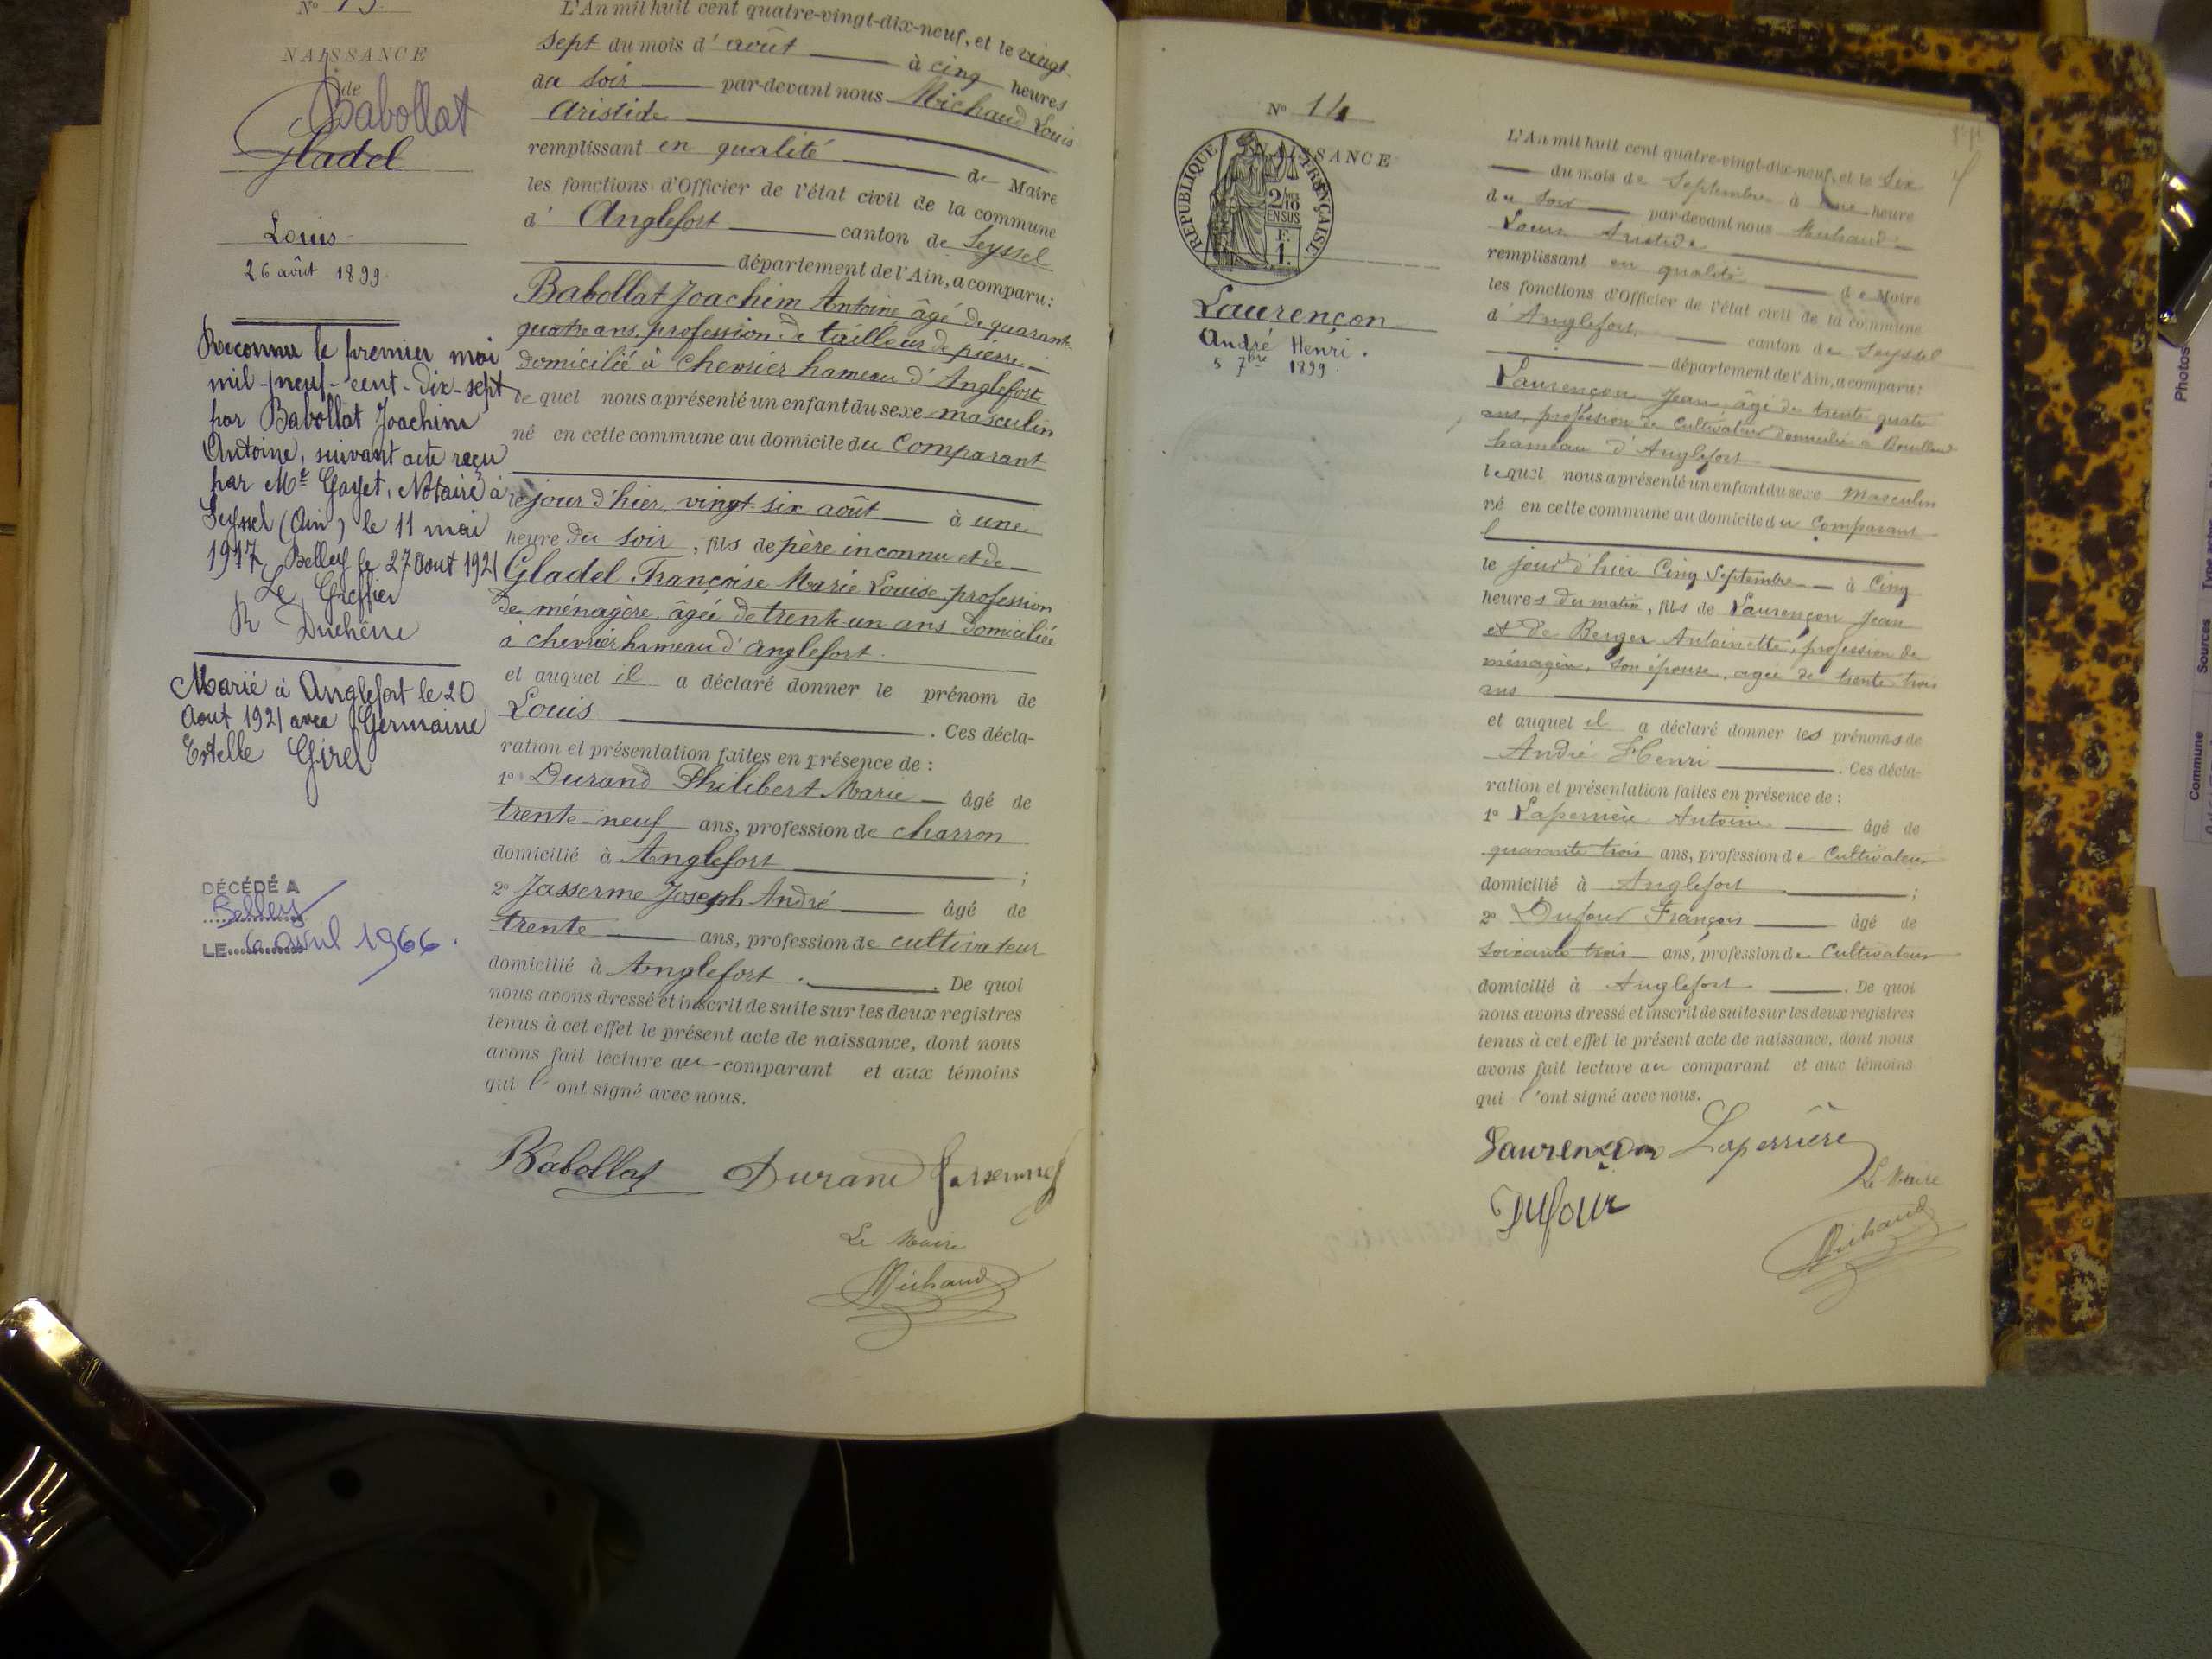 N° 13.
NAISSANCE
de
Babollat
Gladel
Louis
26 août 1899
Reconnu le premier mai
mil-neuf-cent-dix-sept
par Babollat Joachim
Antoine, suivant acte reçu
par Me Gayet, Notaire à
Seyssel (Ain) le 11 mai
1917 Belley le 27 Aout 1921
Le Greffier
R Duchêne
Marié à Anglefort le 20
Aout 1921 avec Germaine
Estelle Girel
DÉCÉDÉ A
Belley
LE 6 avril 1966.
L'An mil huit cent quatre-vingt-dix-neuf, et le vingt
sept du mois d' août à cinq heures
du soir par-devant nous Michaud Louis
Aristide
remplissant en qualité de Maire
les fonctions d'Officier de l'état civil de la commune
d' Anglefort canton de Seyssel
département de l'Ain, a comparu:
Babollat Joachim Antoine âgé de quarante
quatre ans, profession de tailleur de pierre
domicilié à Chevrier hameau d'Anglefort
lequel nous a présenté un enfant du sexe masculin
né en cette commune au domicile du Comparant
le jour d'hier, vingt-six août à une
heure du soir, fils de père inconnu et de
Gladel Françoise Marie Louise, profession
de ménagère, âgée de trente-un ans domiciliée
à chevrier hameau d'anglefort.
et auquel il a déclaré donner le prénom de
Louis. Ces décla-
ration et présentation faites en présence de :
1° Durand Philibert Marie âgé de
trente-neuf ans, profession de charron
domicilié à Anglefort ;
2° Jasserme Joseph André âgé de
trente ans, profession de cultivateur
domicilié à Anglefort. De quoi
nous avons dressé et inscrit de suite sur les deux registres
tenus à cet effet le présent acte de naissance, dont nous
avons fait lecture au comparant et aux témoins
qui l'ont signé avec nous.
Babollat Durand Jasserme
Le Maire
Michaud
N° 14
NAISSANCE
RÉPUBLIQUE FRANÇAISE
2/10
EN SUS
F.
1.
Laurençon
André Henri.
5 7bre 1899.
L'An mil huit cent quatre-vingt-dix-neuf, et le Six
du mois de Septembre à une heure
du soir par-devant nous Michaud
Louis Aristide
remplissant en qualité de Maire
les fonctions d'Officier de l'état civil de la commune
d'Anglefort, canton de Seyssel
département de l'Ain, a comparu:
Laurençon Jean âgé de trente quatre
ans, profession de Cultivateur domicilié à
hameau d'Anglefort
lequel nous a présenté un enfant du sexe Masculin
né en cette commune au domicile du Comparant
le jour d'hier Cinq Septembre à Cinq
heures du matin, fils de Laurençon Jean
et de Berger Antoinette, profession de
ménagère, son épouse, agée de trente trois
ans
et auquel il a déclaré donner les prénoms de
André Henri. Ces décla-
ration et présentation faites en présence de :
1° Laperrière Antoine âgé de
quarante trois ans, profession de Cultivateur
domicilié à Anglefort ;
2° Dufour François âgé de
soixante trois ans, profession de Cultivateur
domicilié à Anglefort. De quoi
nous avons dressé et inscrit de suite sur les deux registres
tenus à cet effet le présent acte de naissance, dont nous
avons fait lecture au comparant et aux témoins
qui l'ont signé avec nous.
Laurençon Laperrière
Dufour
Le Maire
Michaud
Photos
Commune Sources